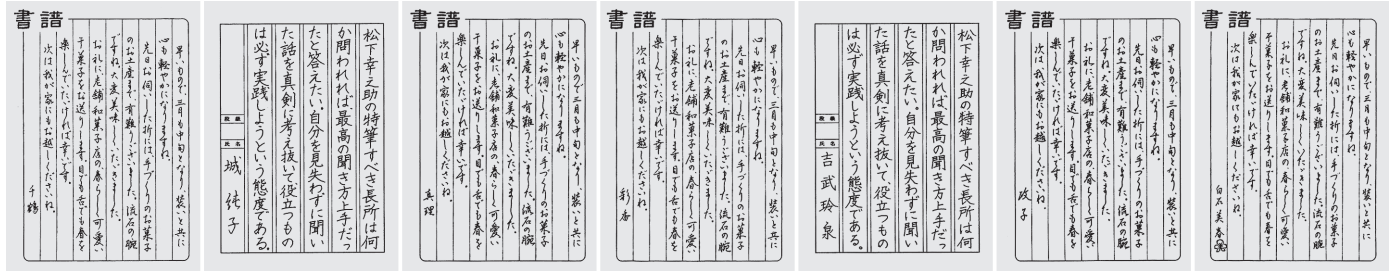 書譜
早いもので、三月も中旬となり、装いと共に
心も軽やかになりますね。
先日お伺いした折には、手づくりのお菓子
のお土産まで有難うございました。流石の腕
ですね。大変美味しくいただきました。
お礼に老舗和菓子店の春らしく可愛い
干菓子をお送りします。目でも舌でも春を
楽しんでいただければ幸いです。
次は我が家にもお越しくださいね。
千鶴
松下幸之助の特筆すべき長所は何
か問われれば、最高の聞き方上手だっ
たと答えたい。自分を見失わずに聞い
た話を真剣に考え抜いて、役立つもの
は必ず実践しようという態度である。
段級
氏名 城純子
書譜
早いもので、三月も中旬となり、装いと共に
心も軽やかになりますね。
先日お伺いした折には、手づくりのお菓子
のお土産まで有難うございました。流石の腕
ですね。大変美味しくいただきました。
お礼に老舗和菓子店の春らしく可愛い
干菓子をお送りします。目でも舌でも春を
楽しんでいただければ幸いです。
次は我が家にもお越しくださいね。
真理
書譜
早いもので、三月も中旬となり、装いと共に
心も軽やかになりますね。
先日お伺いした折には、手づくりのお菓子
のお土産まで有難うございました。流石の腕
ですね。大変美味しくいただきました。
お礼に老舗和菓子店の春らしく可愛い
干菓子をお送りします。目でも舌でも春を
楽しんでいただければ幸いです。
次は我が家にもお越しくださいね。
彩香
松下幸之助の特筆すべき長所は何
か問われれば、最高の聞き方上手だっ
たと答えたい。自分を見失わずに聞い
た話を真剣に考え抜いて、役立つもの
は必ず実践しようという態度である。
段級
氏名 吉武玲泉
書譜
早いもので、三月も中旬となり、装いと共に
心も軽やかになりますね。
先日お伺いした折には、手づくりのお菓子
のお土産まで有難うございました。流石の腕
ですね。大変美味しくいただきました。
お礼に老舗和菓子店の春らしく可愛い
干菓子をお送りします。目でも舌でも春を
楽しんでいただければ幸いです。
次は我が家にもお越しくださいね。
政子
書譜
早いもので、三月も中旬となり、装いと共に
心も軽やかになりますね。
先日お伺いした折には、手づくりのお菓子
のお土産まで有難うございました。流石の腕
ですね。大変美味しくいただきました。
お礼に老舗和菓子店の春らしく可愛い
干菓子をお送りします。目でも舌でも春を
楽しんでいただければ幸いです。
次は我が家にもお越しくださいね。
白石美春